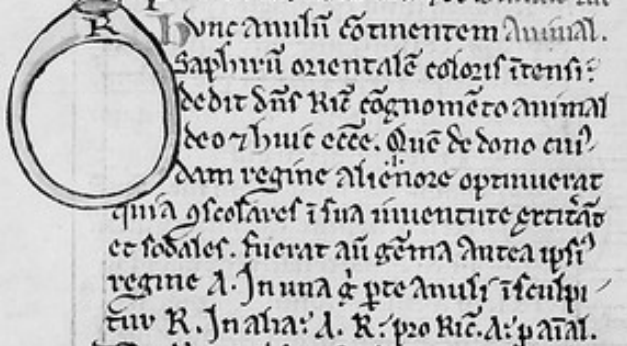 R
hunc anulū cōtinentem Animal.
Saphirū orientalē coloris ītensi:
dedit dn̄s Ric̄ cōgnomēto animal
deo ⁊ huic ecc̄e. Quē de dono cui᾽
dam regine alienore optinuerat
quia ꝯscolares ī sua iuuentute extitāt
et sodales. fuerat aū gēma Antea ipsi᾽
regine A. In una g̊ ꝑte anuli īsculpi
tur R. In alia: A. R: pro Ric̄. A: p aīal.